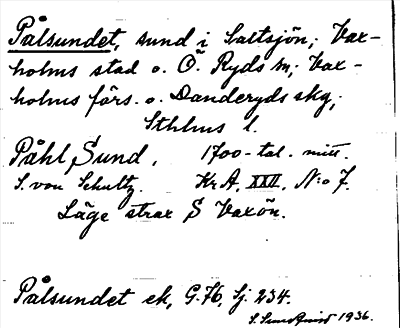 Pålsundet, sund i Saltsjön; Vax-
holms stad o. Ö. Ryds sn; Vax-
holms förs. o. Danderyds skg;
Sthlms l.
Påhl Sund. 1700-tal. mitt.
S. von Schultz. KrA. XXII. N:o 7.
Läge strax S Vaxön.
Pålsundet ek, G. 76, Sj. 234.
1936.